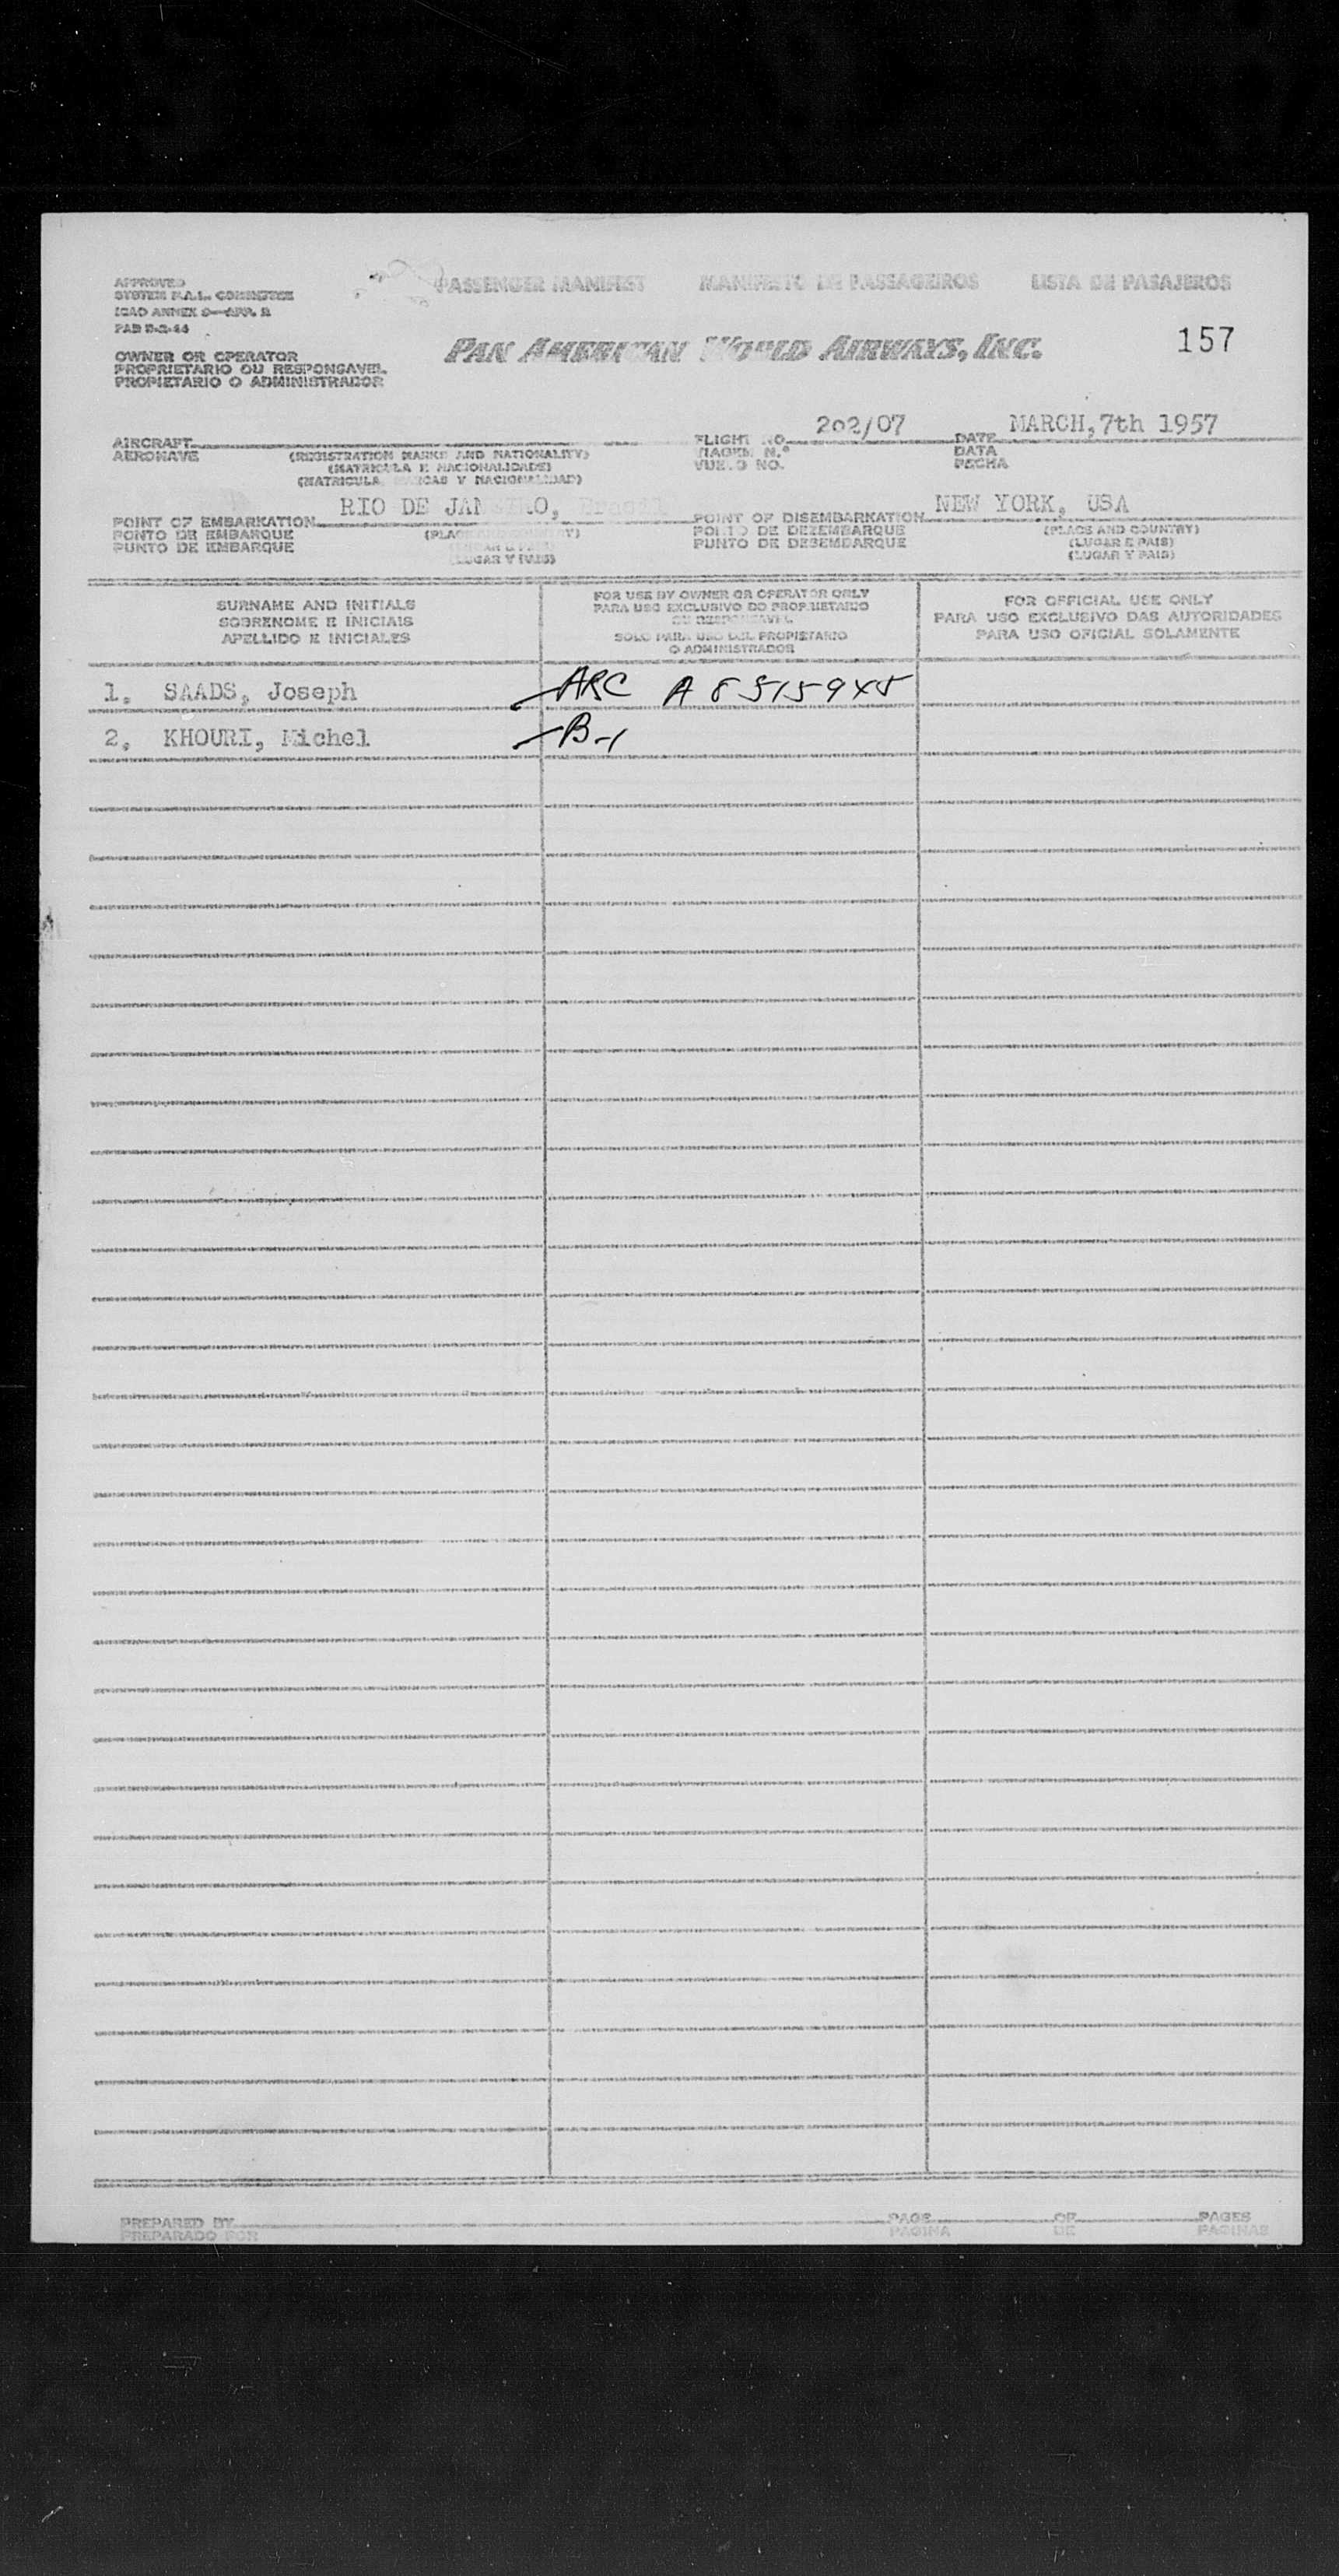 APPROVED
SYSTEM M.A.L. COMMITTEE
ICAO ANNEX 9—APP. B
PASSENGER MANIFEST MANIFESTO DE PASSAGEIROS LISTA DE PASAJEROS
PAN AMERICAN WORLD AIRWAYS, INC.
157
OWNER OR OPERATOR
PROPRIETARIO OU RESPONSAVEL
PROPIETARIO O ADMINISTRADOR
AIRCRAFT
AERONAVE
(REGISTRATION MARKS AND NATIONALITY)
(MATRICULA E NACIONALIDADE)
(MATRICULA, MARCAS Y NACIONALIDAD)
FLIGHT NO. 202/07
VIAGEM N.º
VUELO NO.
DATE MARCH,7th 1957
DATA
FECHA
POINT OF EMBARKATION RIO DE JANEIRO, Brasil
PONTO DE EMBARQUE
PUNTO DE EMBARQUE
(PLACE AND COUNTRY)
(LUGAR E PAIS)
(LUGAR Y PAIS)
POINT OF DISEMBARKATION NEW YORK, USA
PONTO DE DEZEMBARQUE
PUNTO DE DESEMBARQUE
(PLACE AND COUNTRY)
(LUGAR E PAIS)
(LUGAR Y PAIS)
SURNAME AND INITIALS
SOBRENOME E INICIAIS
APELLIDO E INICIALES
FOR USE BY OWNER OR OPERATOR ONLY
PARA USO EXCLUSIVO DO PROPRIETARIO
OU RESPONSAVEL
SOLO PARA USO DEL PROPIETARIO
O ADMINISTRADOR
FOR OFFICIAL USE ONLY
PARA USO EXCLUSIVO DAS AUTORIDADES
PARA USO OFICIAL SOLAMENTE
1. SAADS, Joseph ARC A 8515945
2. KHOURI, Michel B-1
PREPARED BY
PREPARADO POR
PAGE OF PAGES
PAGINA DE PAGINAS